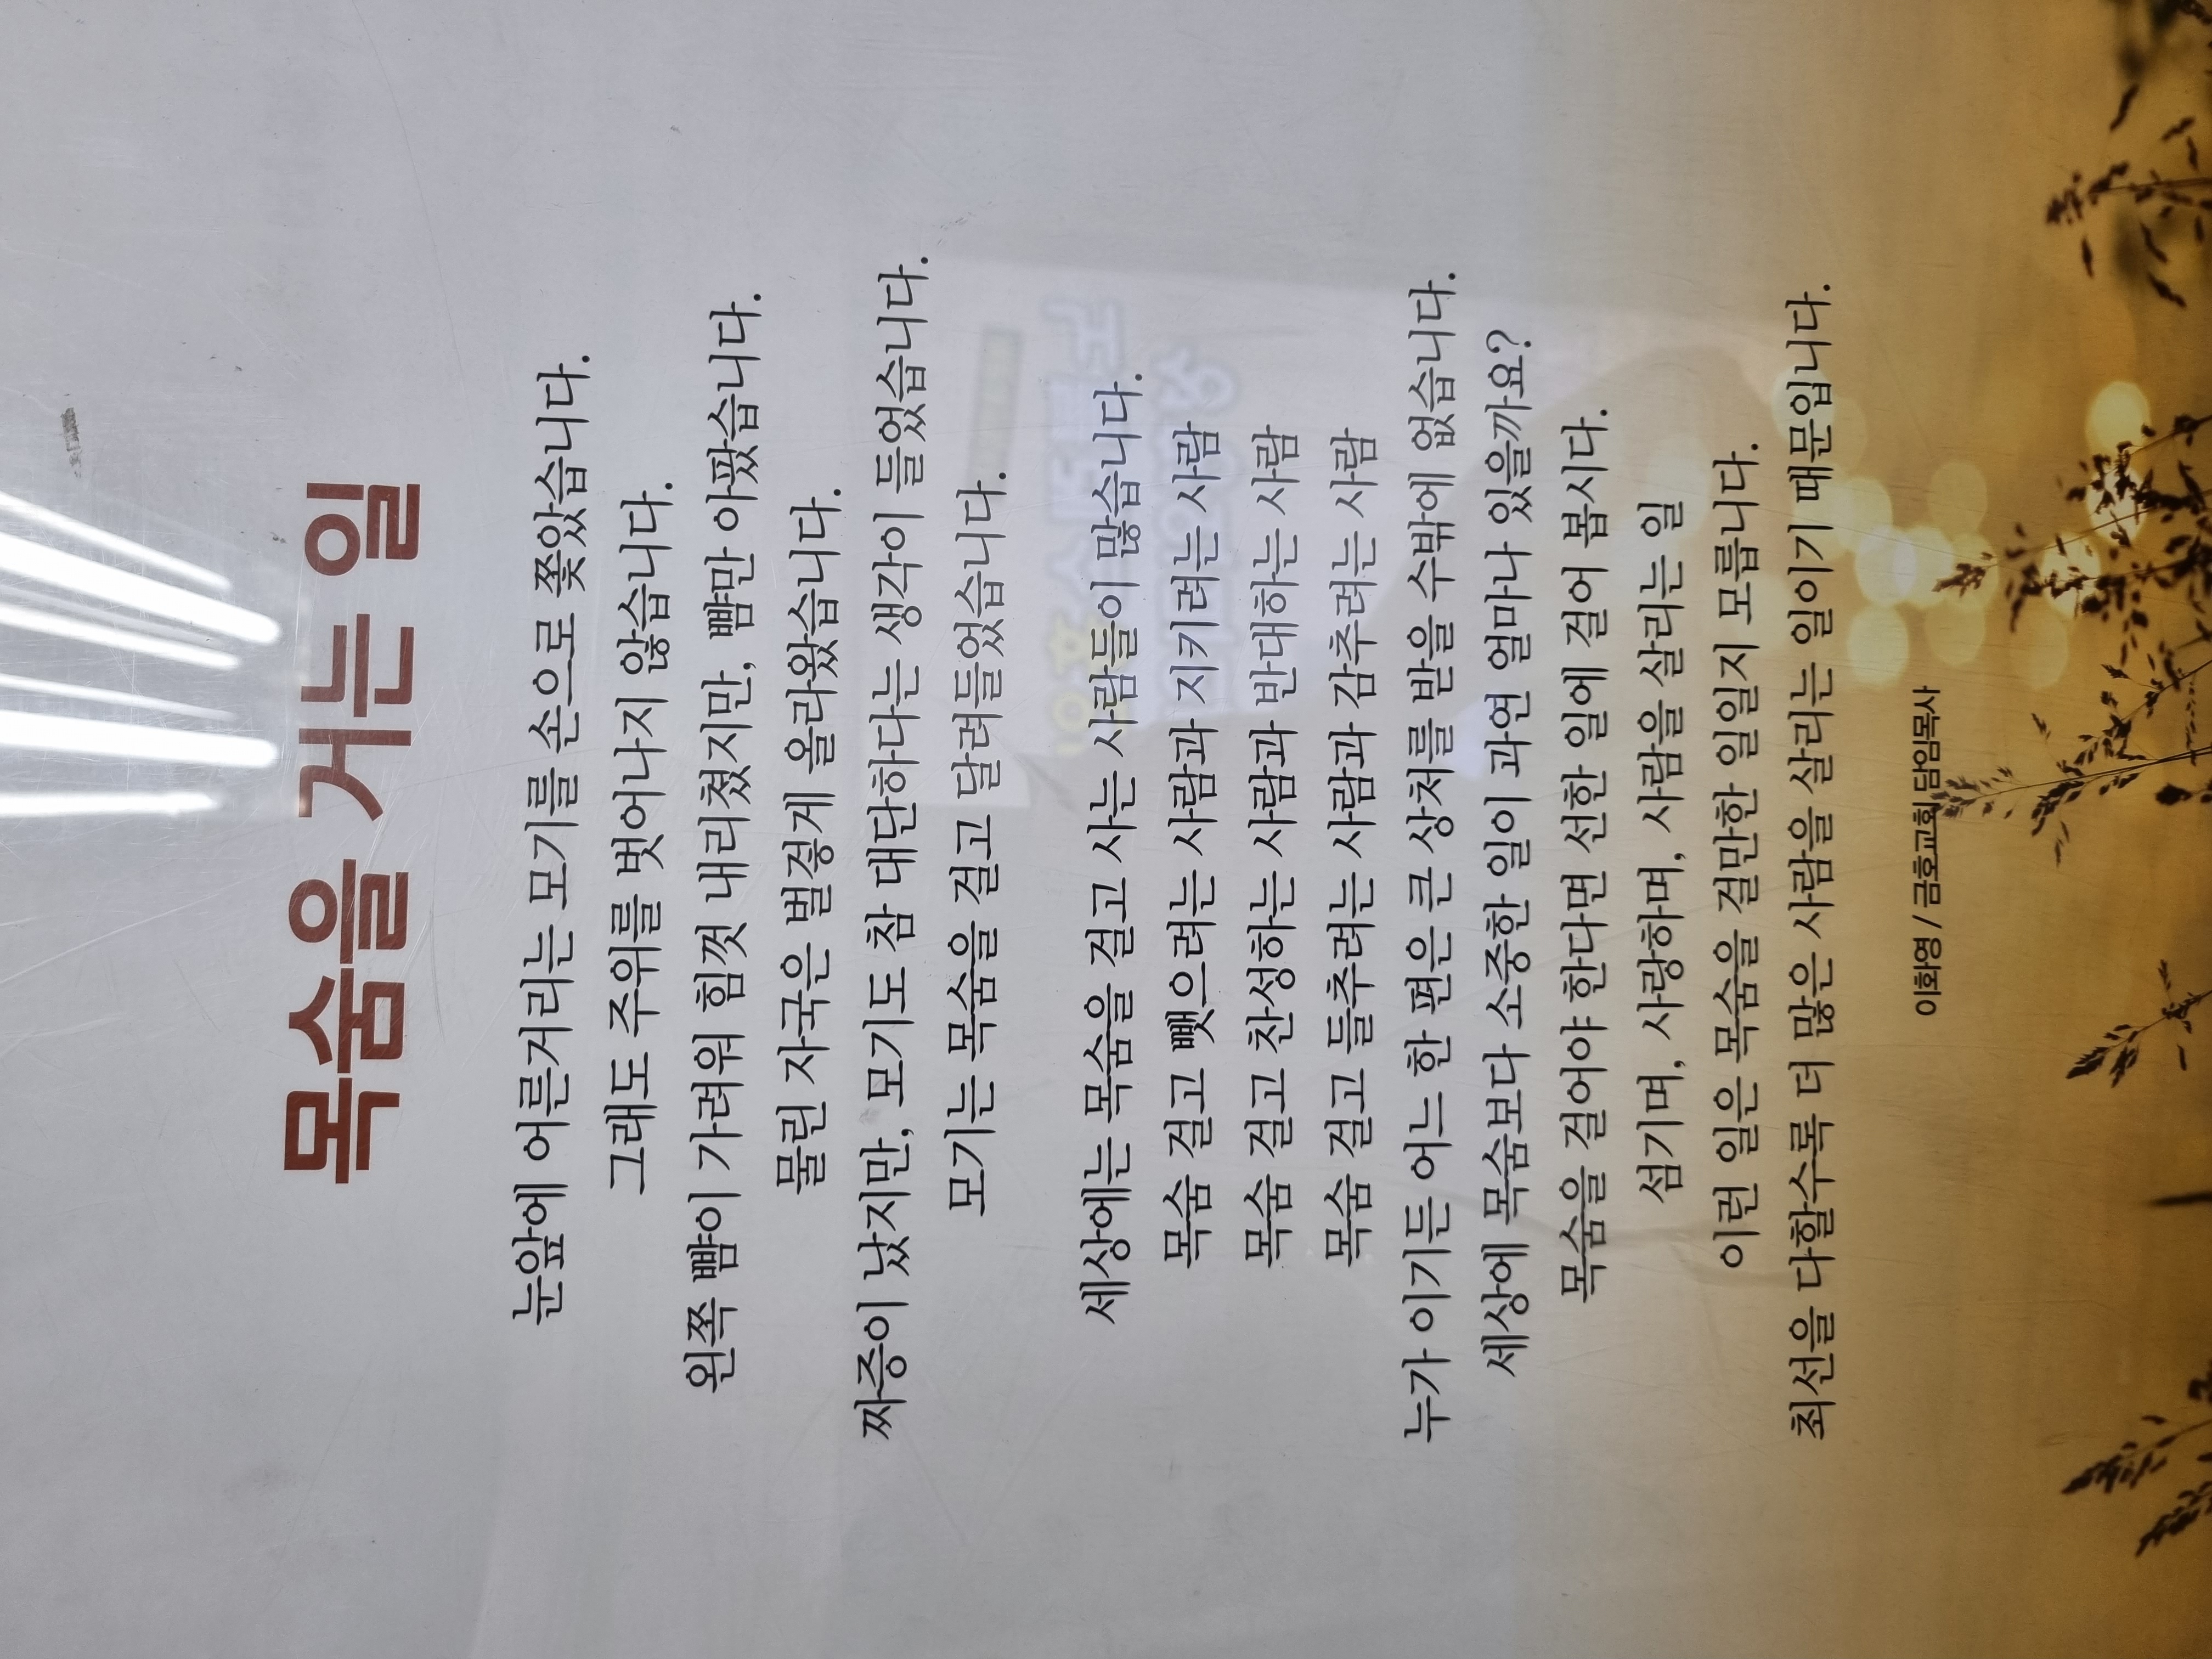 목숨을 거는 일
눈앞에 어른거리는 모기를 손으로 쫓았습니다.
그래도 주위를 벗어나지 않습니다.
왼쪽 뺨이 가려워 힘껏 내리쳤지만, 뺨만 아팠습니다.
물린 자국은 벌겋게 올라왔습니다.
짜증이 났지만, 모기도 참 대단하다는 생각이 들었습니다.
모기는 목숨을 걸고 달려들었습니다.
세상에는 목숨을 걸고 사는 사람들이 많습니다.
목숨 걸고 뺏으려는 사람과 지키려는 사람
목숨 걸고 찬성하는 사람과 반대하는 사람
목숨 걸고 들추려는 사람과 감추려는 사람
누가 이기든 어느 한 편은 큰 상처를 받을 수밖에 없습니다.
세상에 목숨보다 소중한 일이 과연 얼마나 있을까요?
목숨을 걸어야 한다면 선한 일에 걸어 봅시다.
섬기며, 사랑하며, 사람을 살리는 일
이런 일은 목숨을 걸만한 일일지 모릅니다.
최선을 다할수록 더 많은 사람을 살리는 일이기 때문입니다.
이화영 / 금호교회 담임목사